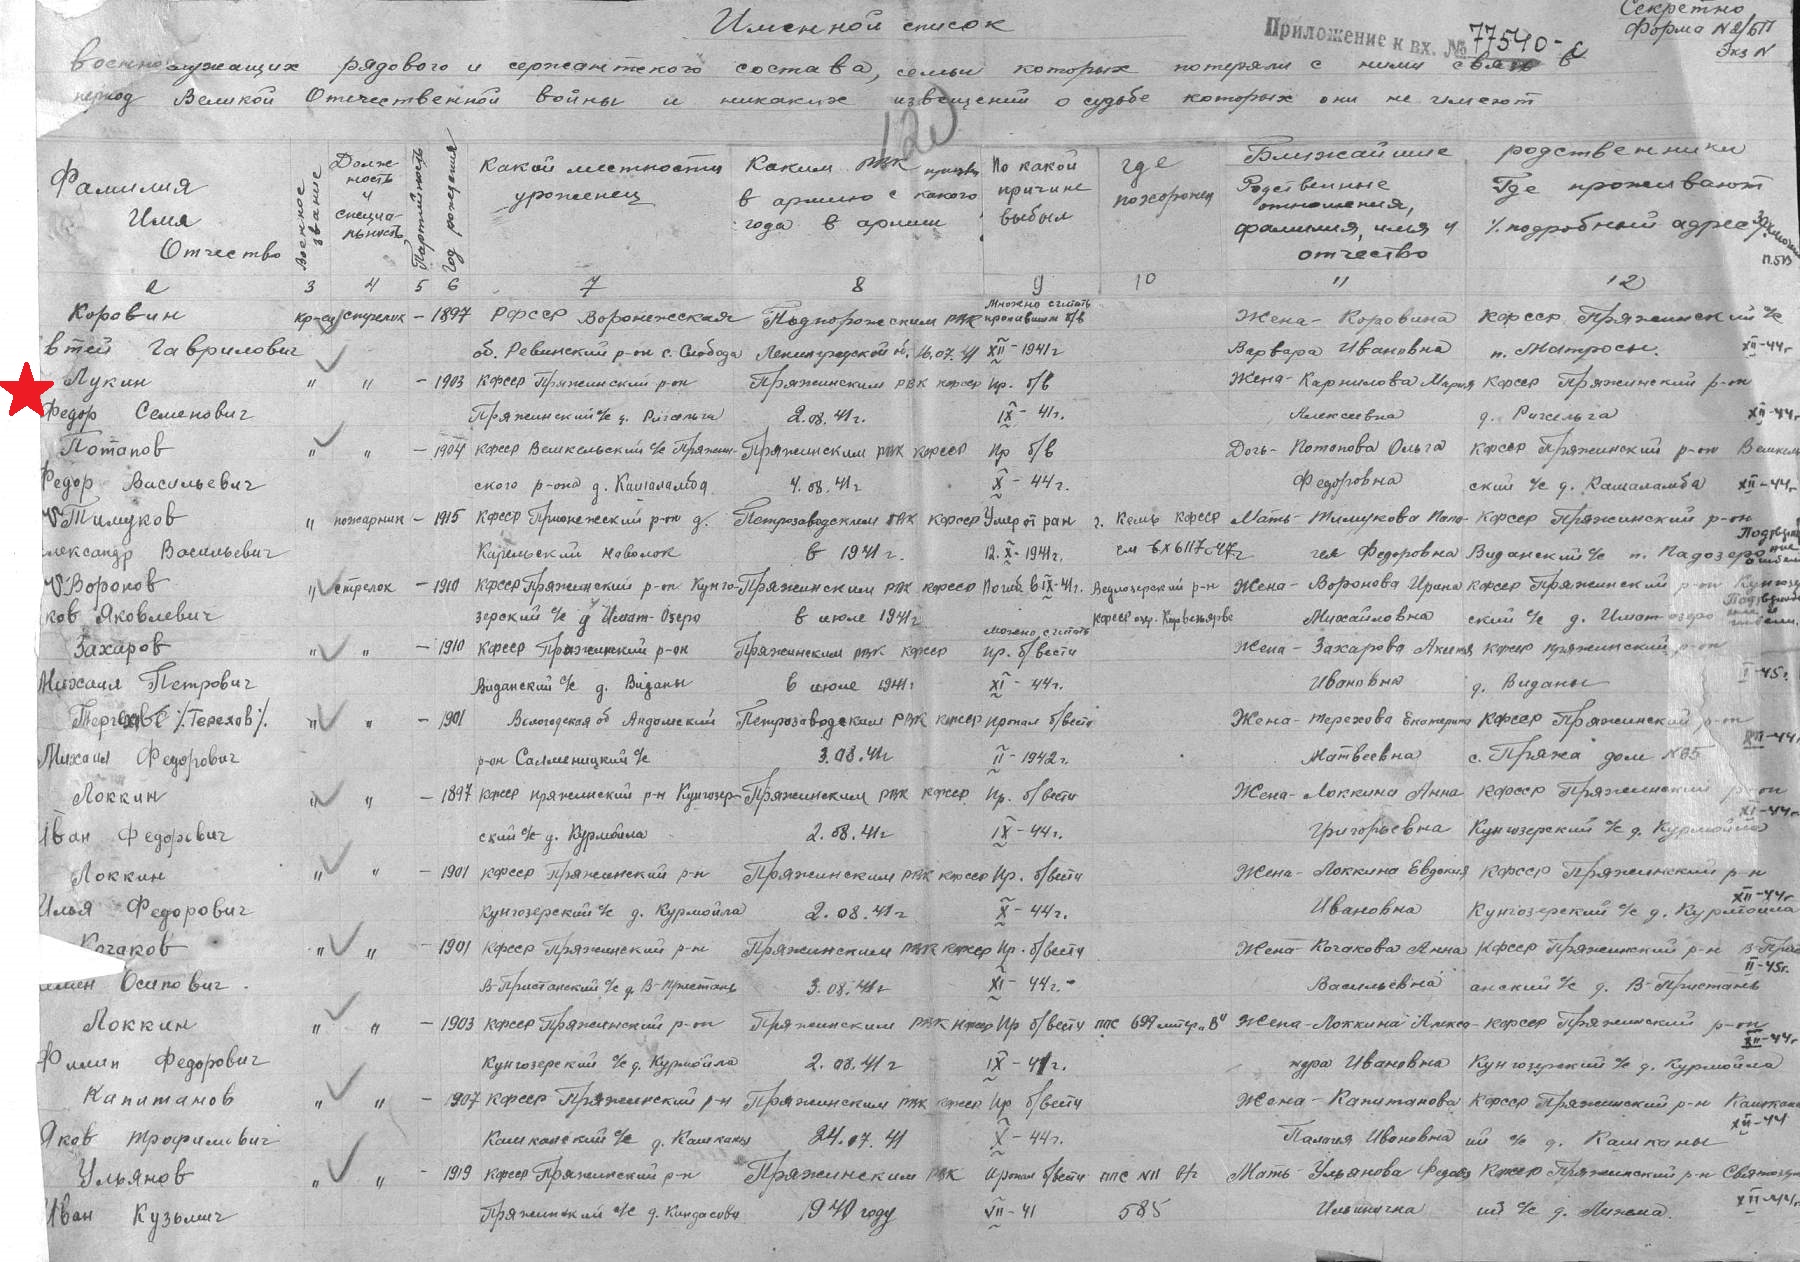 Именной список
Секретно
Форма №2/БП
Экз №
Приложение к вх. № 77540-с
военнослужащих рядового и сержантского состава, семьи которых потеряли с ними связь в
период Великой Отечественной войны и никаких извещений о судьбе которых они не имеют
120
Фамилия Имя Отчество
Военное звание
Должность и специальность
Партийность
Год рождения
Какой местности уроженец
Каким РВК призван в армию с какого года в армии
По какой причине выбыл
где похоронен
Ближайшие родственники
Родственные отношения, фамилия, имя и отчество
Где проживают /подробный адрес/
2 3 4 5 6 7 8 9 10 11 12
Коровин кр-ец стрелок – 1897 РФССР Воронежская Подпорожским РВК можно считать пропавшим б/в Жена - Коровина КФССР Пряжинский с/с
Гаврилович об. Ревинский р-он с. Слобода Ленинградской 16.07.41 XII - 1941г Варвара Ивановна п. Матросы. XII-44г
Лукин " " – 1903 КФССР Пряжинский р-он Пряжинским РВК КФССР Пр. б/в Жена - Карпилова Мария КФССР Пряжинский р-он
Федор Семенович Пряжинский с/с д. Ригсельга 2.08.41г. IX - 41г. Алексеевна д. Ригсельга XII-44г
Потапов " " – 1904 КФССР Вешкельский с/с Пряжин- Пряжинским РВК КФССР Пр б/в Дочь - Потопова Ольга КФССР Пряжинский р-он Вешкель
Федор Васильевич ского р-она д. Кашаламба 4.08.41г X - 44г. Федоровна ский с/с д. Кашаламба XII-44г
Тимуков " пожарник – 1915 КФССР Прионежский р-он д. Петрозаводским РВК КФССР Умер от ран г. Кемь КФССР Мать - Тимукова Пела- КФССР Пряжинский р-он
лександр Васильевич Карельский Наволок в 1941г. 12.X-1941г. см вх 6117-47г гея Федоровна Виданский с/с п. Падозеро
Воронов " стрелок – 1910 КФССР Пряжинский р-он Кунго- Пряжинским РВК КФССР Погиб в IX-41г. Ведлозерский р-н Жена - Воронова Ирина КФССР Пряжинский р-он Кунгозер
ков Яковлевич зерский с/с д Имат-Озеро в июле 1941г КФССР Михайловна ский с/с д. Имат-озеро
Захаров " " – 1910 КФССР Пряжинский р-он Пряжинским РВК КФССР можно считать Пр. б/вести Жена - Захарова КФССР Пряжинский р-он
Михаил Петрович Виданский с/с д. Виданы в июле 1941г XI - 44г. Ивановна д. Виданы I-45г.
/Терехов/. " " – 1901 Вологодская об Андомский Петрозаводским РВК КФССР Пропал б/вести Жена - Терехова Екатерина КФССР Пряжинский р-он
Михаил Федорович р-он Салменицкий с/с 3.08.41г II - 1942г. Матвеевна с. Пряжа дом №35
Локкин " " – 1897 КФССР Пряжинский р-н Кунгозер- Пряжинским РВК КФССР Пр. б/вести Жена - Локкина Анна КФССР Пряжинский р-он
Иван Федорович ский с/с д. Курмойла 2.08.41г IX - 44г. Григорьевна Кунгозерский с/с д. Курмойла XI-44г
Локкин " " – 1901 КФССР Пряжинский р-н Пряжинским РВК КФССР Пр. б/вести Жена - Локкина Евдокия КФССР Пряжинский р-н
Илья Федорович Кунгозерский с/с д. Курмойла 2.08.41г X - 44г. Ивановна Кунгозерский с/с д. Курмойла XII-44г
Кочаков " " – 1901 КФССР Пряжинский р-н Пряжинским РВК КФССР Пр. б/вести Жена - Когакова Анна КФССР Пряжинский р-н
Осипович. В-Пристанский с/с д. В-Пристань 3.08.41г XI - 44г. Васильевна анский с/с д. В-Пристань II-45г.
Локкин " " – 1903 КФССР Пряжинский р-он Пряжинским РВК КФССР Пр б/вести ппс 699 литер "В" Жена - Локкина Алекса- КФССР Пряжинский р-он
Филип Федорович Кунгозерский с/с д. Курмойла 2.08.41г IX - 41г. ндра Ивановна Кунгозерский с/с д. Курмойла XII-44г
Капитанов " " – 1907 КФССР Пряжинский р-н Пряжинским РВК КФССР Пр б/вести Жена - Капитанова КФССР Пряжинский р-н Кашкан
Яков Трофимович Кашканский с/с д. Кашканы 24.07.41 X - 44г. Палагия Ивановна ий с/с д. Кашканы XII-44
Ульянов " " – 1919 КФССР Пряжинский р-н Пряжинским РВК Пропал б/вести ппс №11 Мать - Ульянова КФССР Пряжинский р-н
Иван Кузьмич Пряжинский с/с д. Киндасово 1940 году VII - 41 585 Ильинична ий с/с д. Лижма. XII-44г